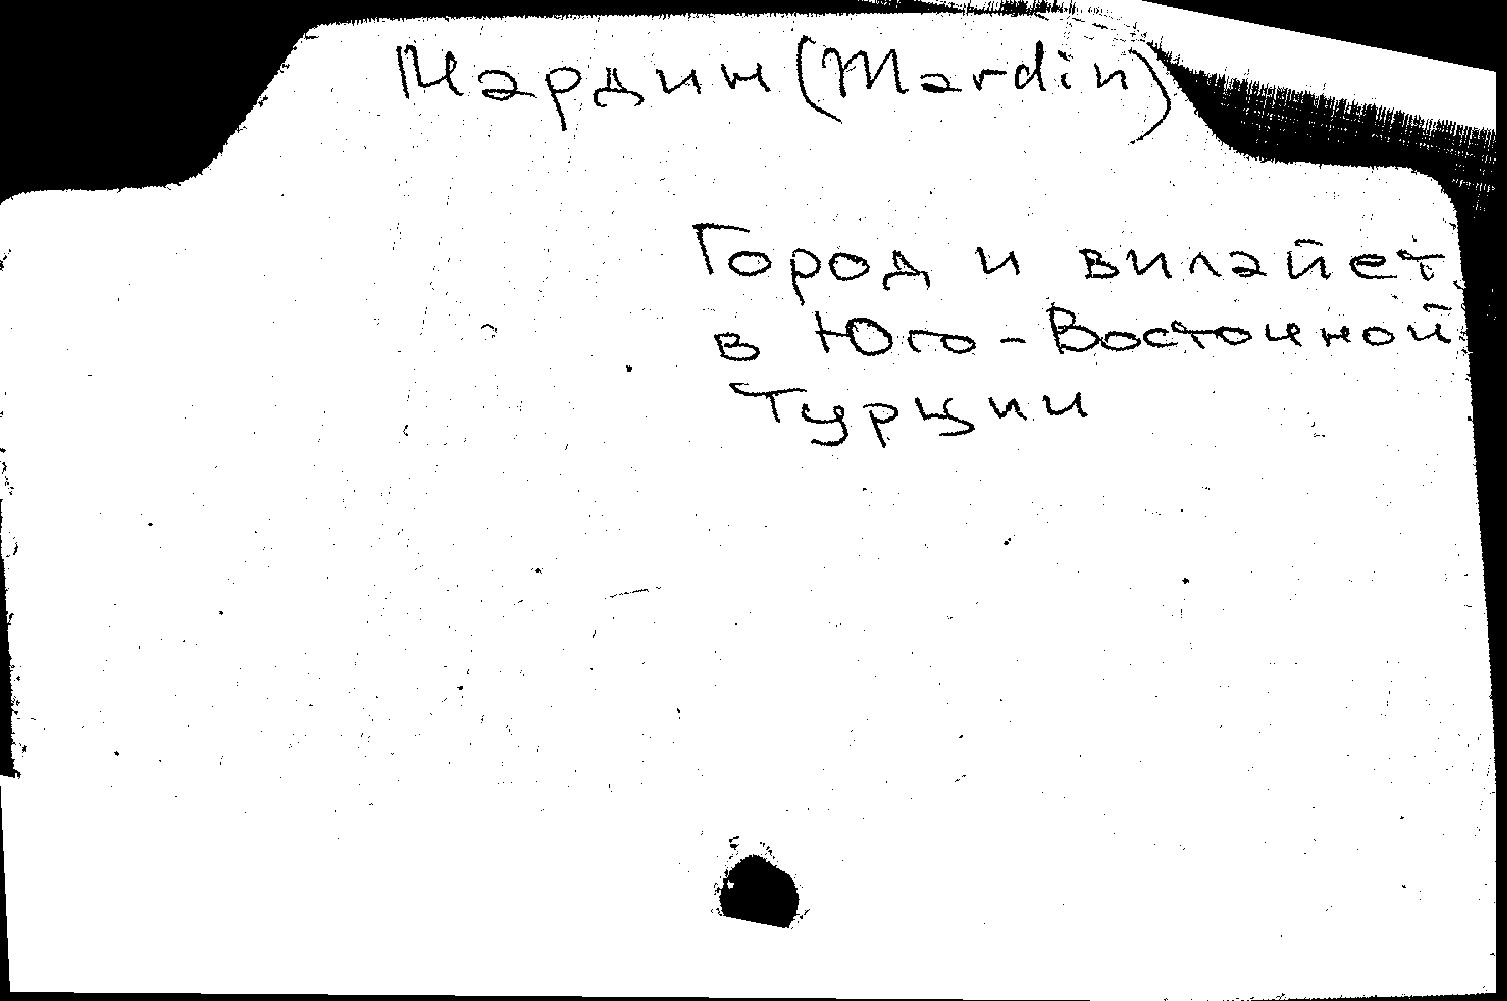 Мардин (Mardin)
Город и вилайет
в Юго-Восточной
Турции